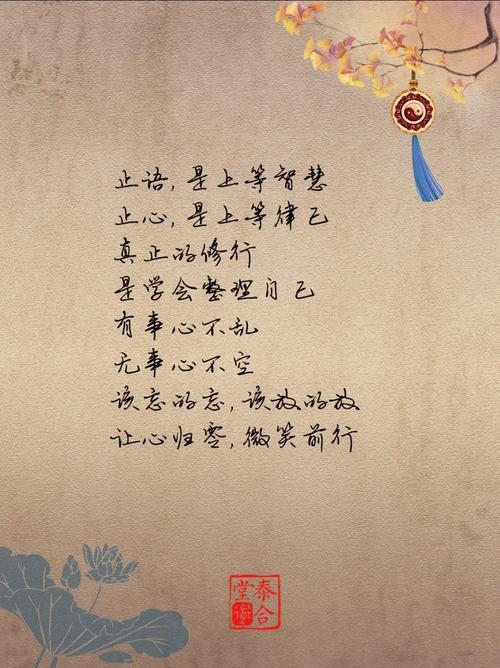 止语，是上等智慧
止心，是上等律己
真正的修行
是学会整理自己
有事心不乱
无事心不空
该忘的忘，该放的放
让心归零，微笑前行
泰合堂